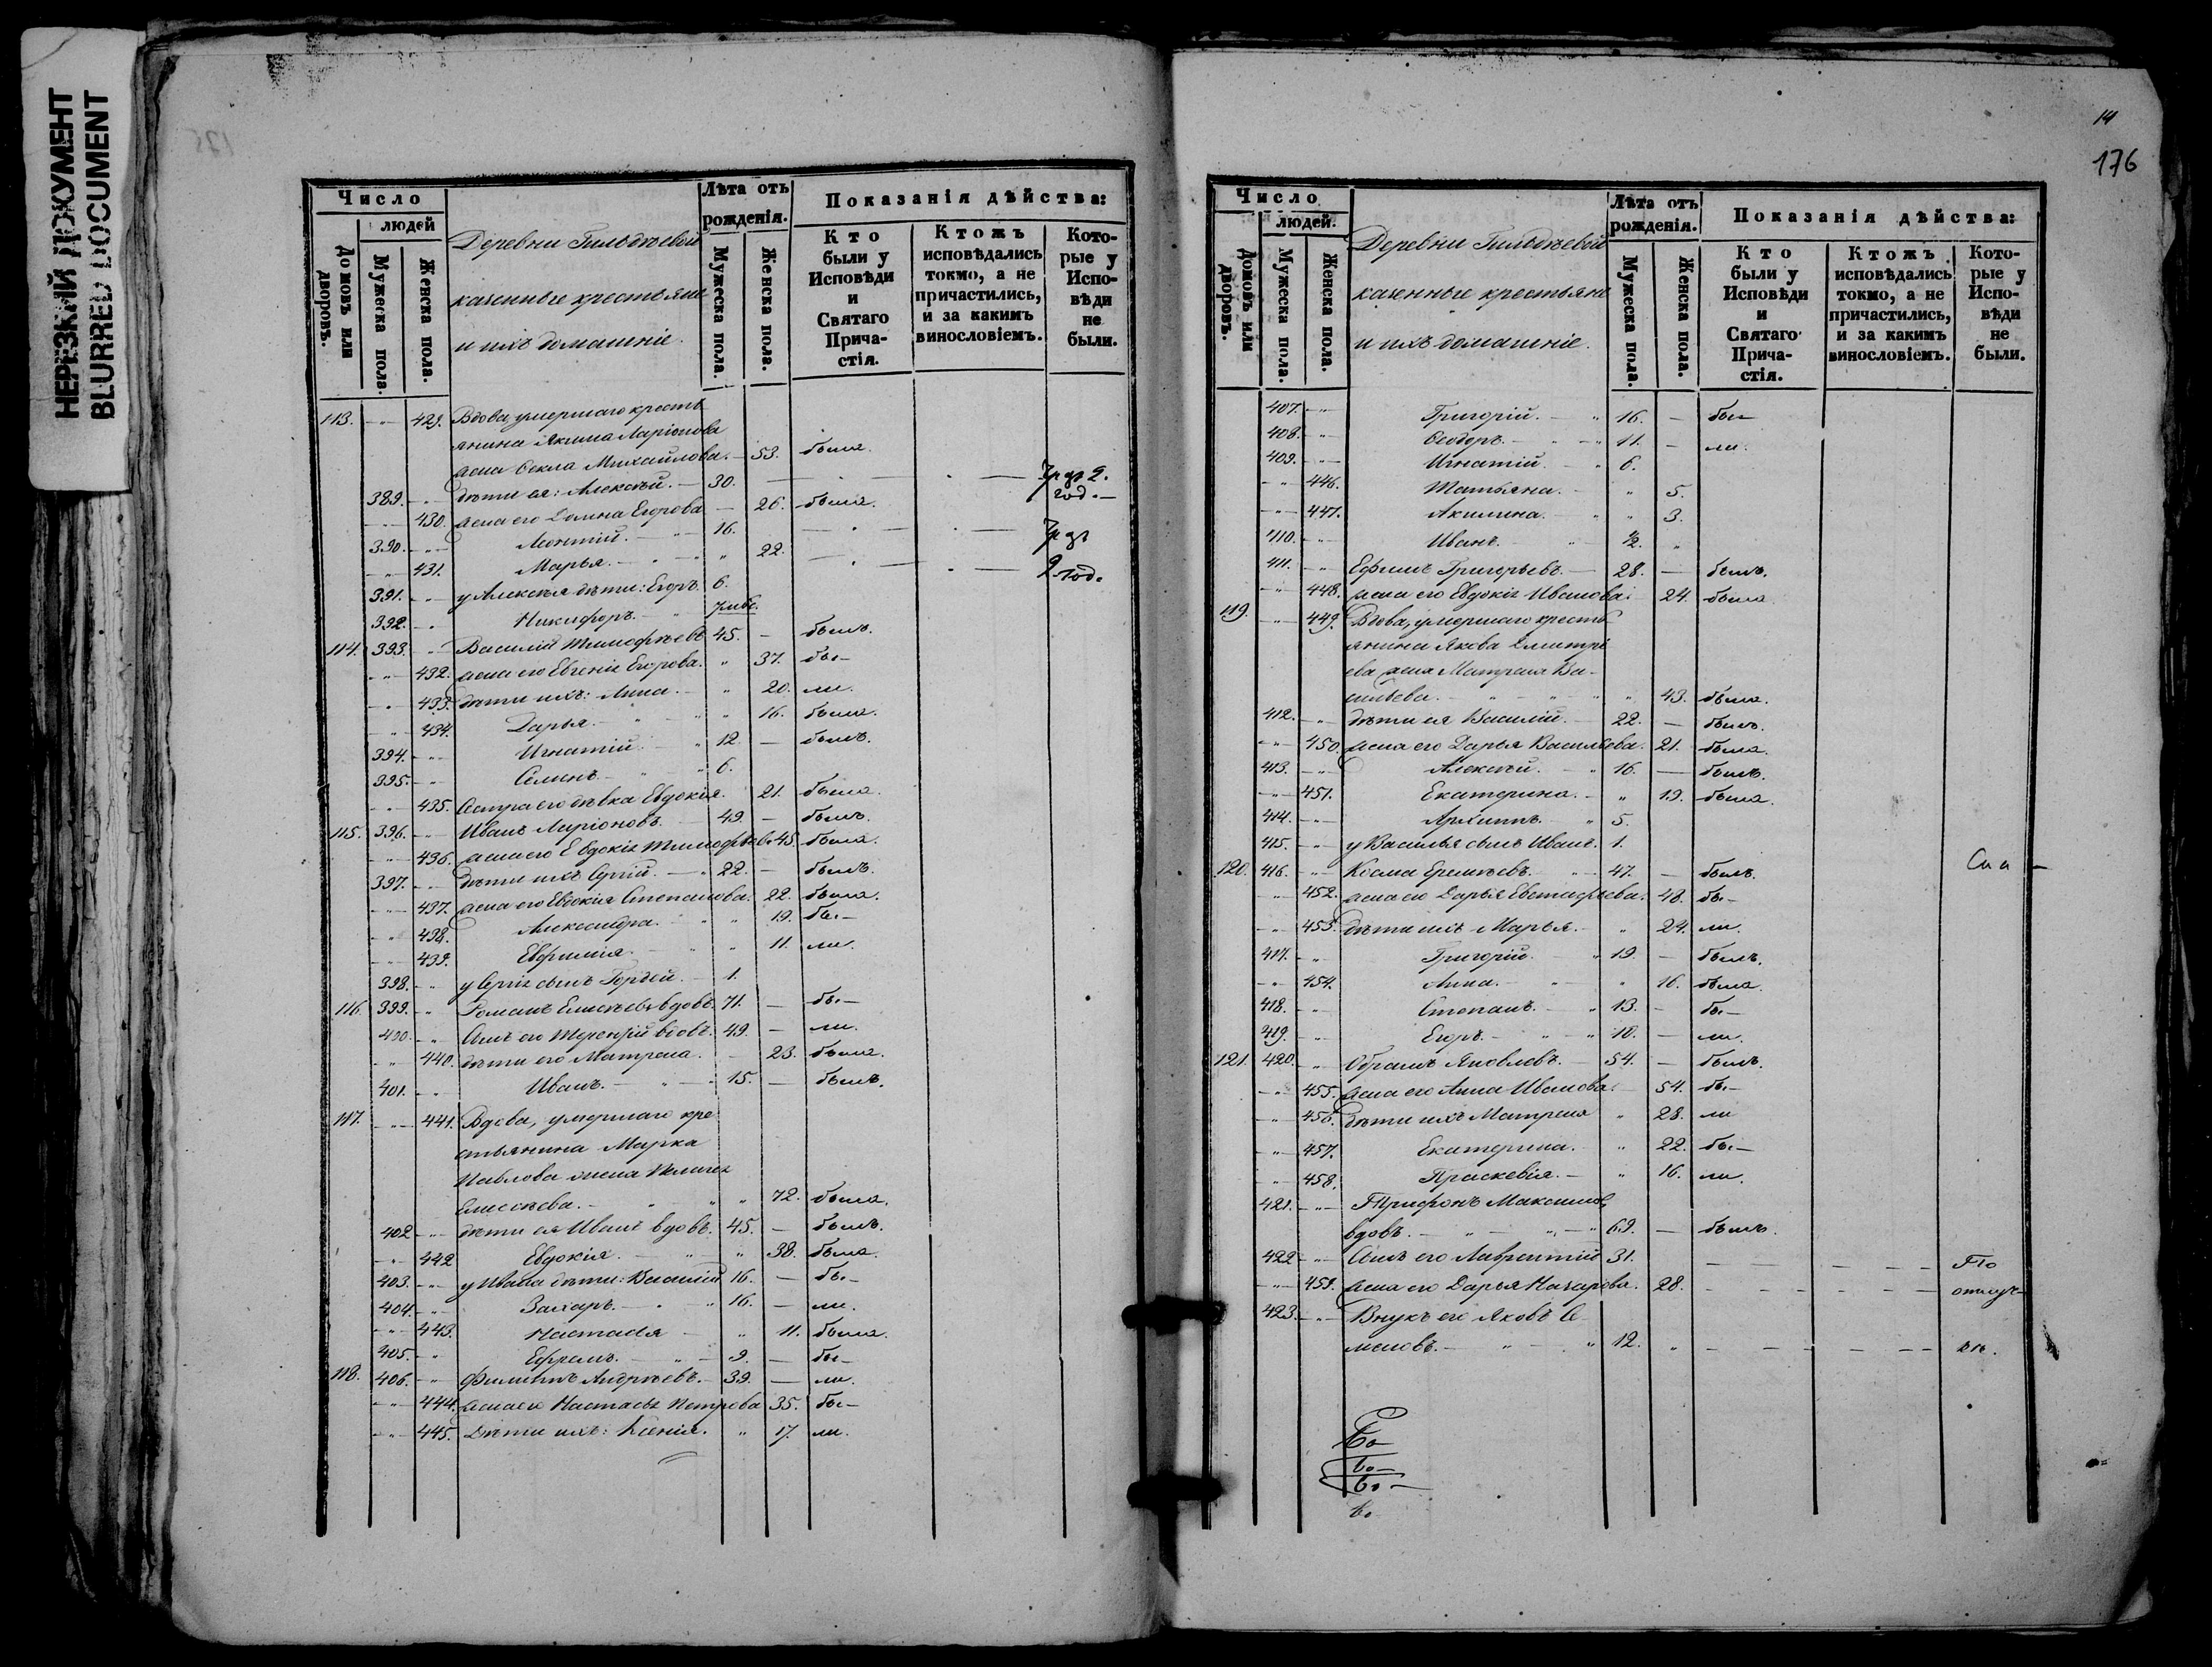 НЕРЕЗКИЙ ДОКУМЕНТ
BLURRED DOCUMENT
175
Число
людей
Домовъ или дворовъ.
Мужеска пола.
Женска пола.
Деревни
казенные крестьяне
и ихъ домашніе.
Лѣта отъ рожденія.
Мужеска пола.
Женска пола.
Показанія дѣйства:
Кто были у Исповѣди и Святаго Причастія.
Ктожъ исповѣдались токмо, а не причастились, и за какимъ винословіемъ.
Которые у Исповѣди не были.
113. 429. Вдова, умершаго кресть
янина Якима Ларіонова
жена Ѳекла Михайлова. 53. была.
389. дѣти ея: Алексѣй. 30. 2. год.
430. жена его Домна Егорова 26. была.
390. Леонтій. 16.
431. Марья. 22. 2 год.
391. у Алексѣя дѣти: Егоръ. 6.
392. Никифоръ.
114. 393. Василій Тимофѣевъ 45. былъ.
432. жена его Евгенія Егорова. 37. бы-
433. дѣти ихъ: Анна. 20. ли.
434. Дарья. 16. была.
394. Игнатій. 12. былъ.
395. Семенъ. 6.
435. Сестра его дѣвка Евдокія. 21. была.
115. 396. Иванъ Ларіоновъ. 49. былъ.
436. жена его Евдокія Тимофѣева 45. была.
397. дѣти ихъ Сергій. 22. былъ.
437. жена его Евдокія Степанова. 22. была.
438. Александра. 19. бы-
439. Евфимія. 11. ли.
398. у Сергія сынъ Гордѣй. 1.
116. 399. Романъ Елисѣевъ вдовъ. 71. бы-
400. Сынъ его Терентій вдовъ. 49. ли.
440. дѣти его Матрена. 23. была.
401. Иванъ. 15. былъ.
117. 441. Вдова, умершаго кре
стьянина Марка
Павлова жена Пелагея
Елисѣева. 72. была.
402. дѣти ея Иванъ вдовъ. 45. былъ.
442 Евдокія. 38. была.
403. у Ивана дѣти: Василій 16. бы-
404. Захаръ. 16. ли.
443. Настасья 11. была.
405. Ефремъ. 9. бы-
118. 406. Филиппъ Андрѣевъ. 39. ли.
444. жена его Настасья Петрова 35. бы-
445. Дѣти ихъ: Ксенія. 17. ли.
14
176
Число
людей.
Домовъ или дворовъ.
Мужеска пола.
Женска пола.
Деревни
казенные крестьяне
и ихъ домашніе.
Лѣта отъ рожденія.
Мужеска пола.
Женска пола.
Показанія дѣйства:
Кто были у Исповѣди и Святаго Причастія.
Ктожъ исповѣдались токмо, а не причастились, и за какимъ винословіемъ.
Которые у Исповѣди не были.
407. Григорій. 16. бы-
408. Ѳеодоръ. 11. ли.
409. Игнатій. 6.
446. Татьяна. 5.
447. Акилина. 3.
410. Иванъ. 1/2.
411. Ефимъ Григорьевъ. 28. былъ.
448. жена его Евдокія Иванова. 24. была
119. 449. Вдова, умершаго кресть
янина Якова Дмитрі
ева жена Матрена Ва-
сильева. 43. была.
412. дѣти ея Василій. 22. былъ.
450. жена его Дарья Васильева. 21. была.
413. Алексѣй. 16. былъ.
451. Екатерина. 19. была.
414. Архиппъ. 5.
415. у Василья сынъ Иванъ. 1.
120. 416. Косма Еремѣевъ. 47. былъ.
452. жена его Дарья Евстафьева. 48. бы-
453. дѣти ихъ Марья. 24. ли.
417. Григорій. 19. былъ.
454. Анна. 16. была.
418. Степанъ. 13. бы-
419. Егоръ. 10. ли.
121. 420. Абрамъ Яковлевъ. 54. былъ.
455. жена его Анна Иванова. 54. бы-
456. дѣти ихъ Матрена 28. ли
457. Екатерина. 22. бы-
458. Праскевія. 16. ли.
421. Трифонъ Максимовъ
вдовъ. 69. былъ.
422 Сынъ его Лаврентій 31. По
459. жена его Дарья Назарова. 28. отлуч-
423. Внукъ его Яковъ Се-
меновъ. 12. кѣ.